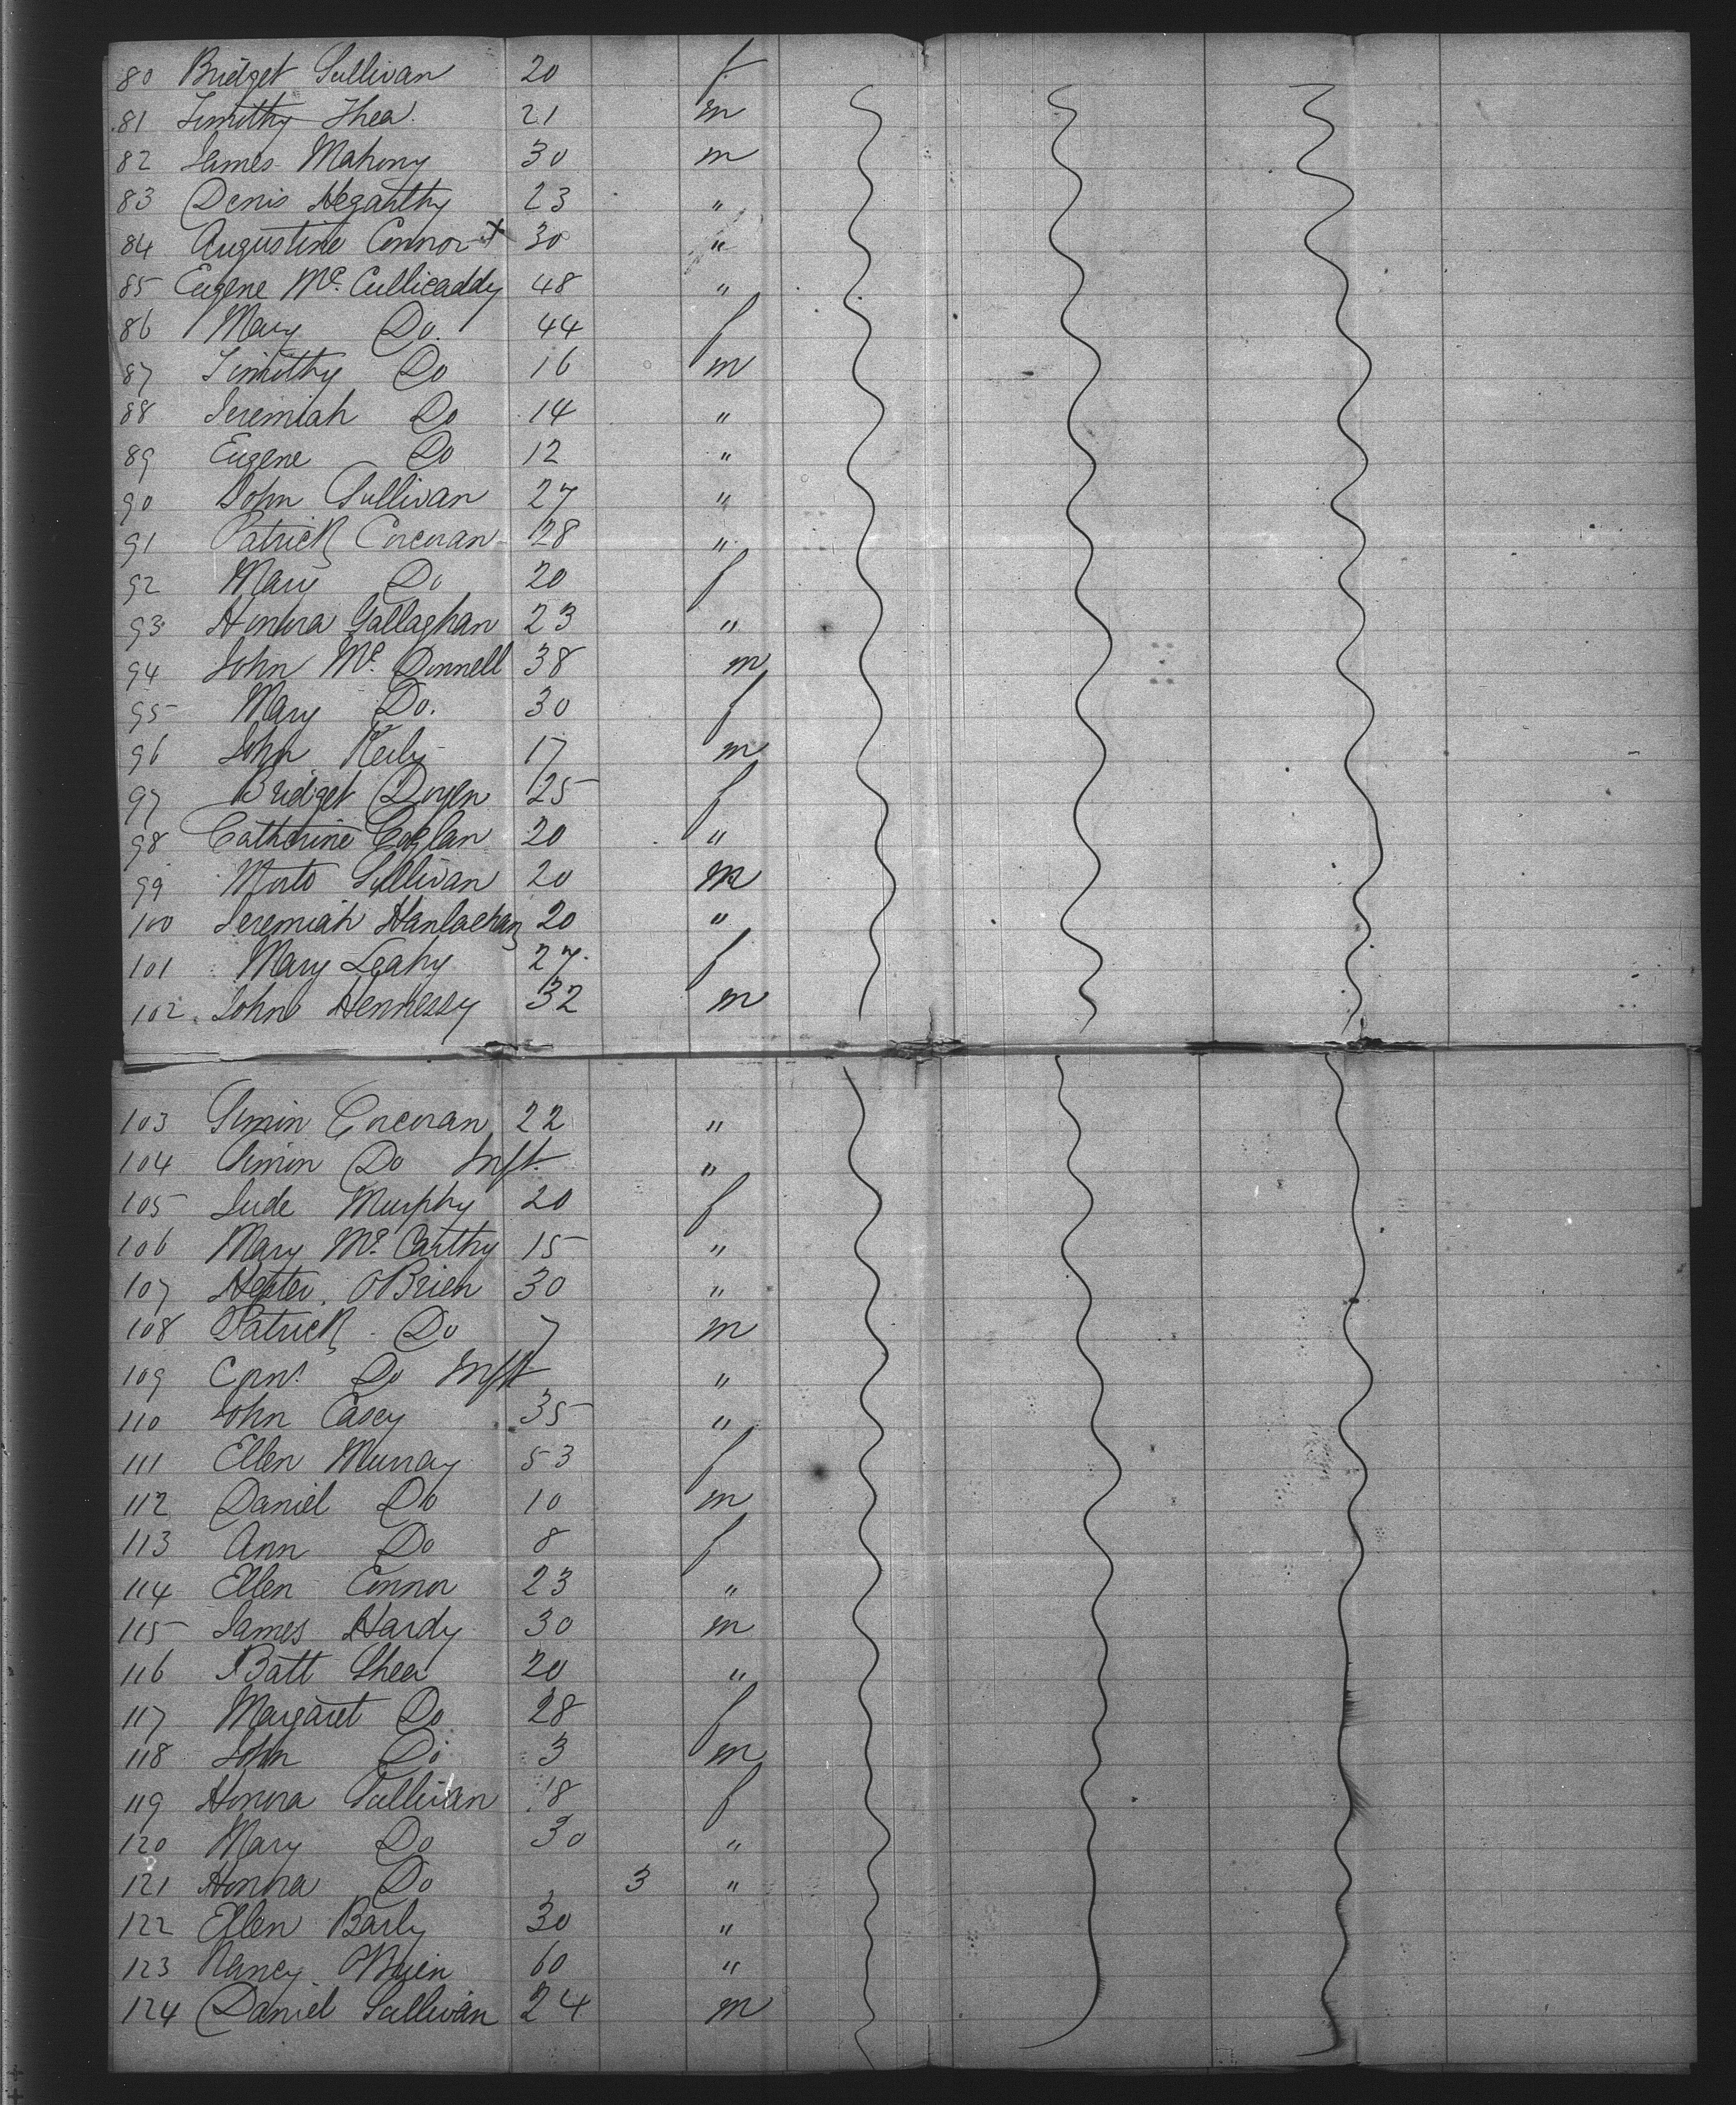 80 Bridget Sullivan 20 f
81 Timithy Shea 21 m
82 James Mahony 30 m
83 Denis Hegarthy 23 "
84 Augustine Connor x 30 "
85 Eugene Mc. Cullicaddy 48 "
86 Mary Do. 44 f
87 Timithy Do 16 m
88 Jeremiah Do 14 "
89 Eugene Do 12 "
90 John Sullivan 27 "
91 Patrick Corcoran 28 "
92 Mary Do 20 f
93 Honora Gallaghan 23 "
94 John Mc. Donnell 38 m
95 Mary Do. 30 f
96 John Keily 17 m
97 Bridget Doyen 25 f
98 Catherine Coglan 20 "
99 Morto Sullivan 20 m
100 Jeremiah Hanlaehan 20 "
101 Mary Leahy 27 f
102 John Hennessy 32 m
103 Simon Corcoran 22 "
104 Simon Do Inft "
105 Jude Murphy 20 f
106 Mary Mc. Carthy 15 "
107 O'Brien 30 "
108 Patrick Do 7 m
109 Corns. Do Inft "
110 John Casey 35 "
111 Ellen Murray 53 f
112 Daniel Do 10 m
113 Ann Do 8 f
114 Ellen Connor 23 "
115 James Hardy 30 m
116 Batt Shea 20 "
117 Margaret Do 28 f
118 John Do 3 m
119 Honora Sullivan 18 f
120 Mary Do 30 "
121 Honora Do 3 "
122 Ellen Barly 30 "
123 Nancy O'Brien 60 "
124 Daniel Sullivan 24 m